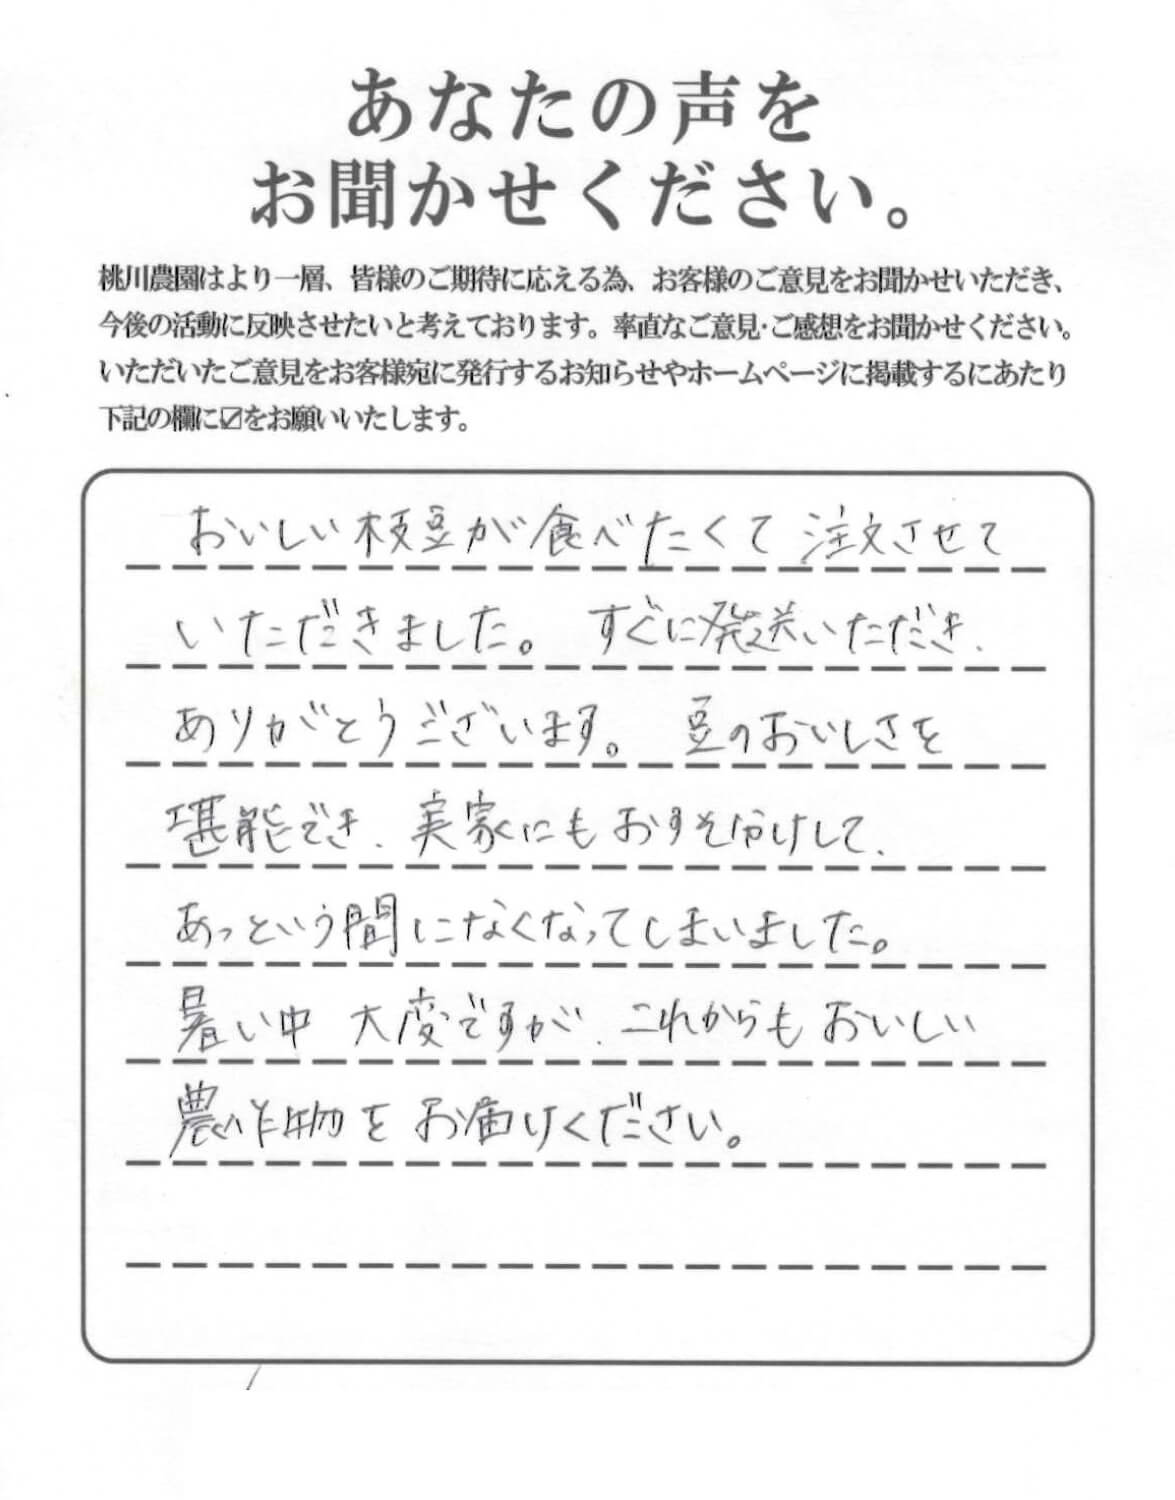 あなたの声を
お聞かせください。
桃川農園はより一層、皆様のご期待に応える為、お客様のご意見をお聞かせいただき、
今後の活動に反映させたいと考えております。率直なご意見・ご感想をお聞かせください。
いただいたご意見をお客様宛に発行するお知らせやホームページに掲載するにあたり
下記の欄に☑をお願いいたします。
おいしい枝豆が食べたくて 注文させて
いただきました。 すぐに発送いただき、
ありがとうございます。 豆のおいしさを
堪能でき、実家にもおすそ分けして、
あっという間になくなってしまいました。
暑い中 大変ですが、これからも おいしい
農作物を お届けください。